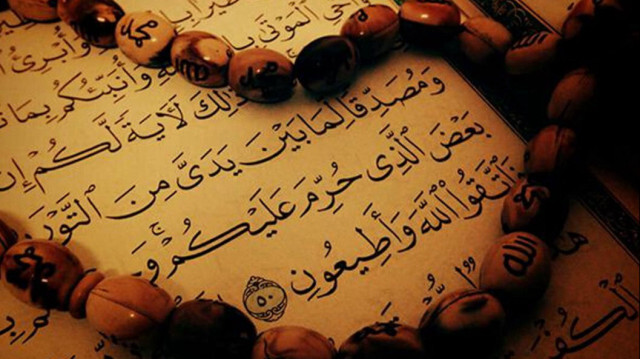 وَأُبْرِئُ
ٱلْمَوْتَىٰ
وَأُنَبِّئُكُم بِمَا
ذَٰلِكَ لَـَٔايَةً لَّكُمْ إِن
وَمُصَدِّقًا لِّمَا بَيْنَ يَدَىَّ مِنَ
بَعْضَ ٱلَّذِى حُرِّمَ عَلَيْكُمْ ۚ
فَٱتَّقُوا۟ ٱللَّهَ وَأَطِيعُونِ ٥٠
محمد
الله
محمد